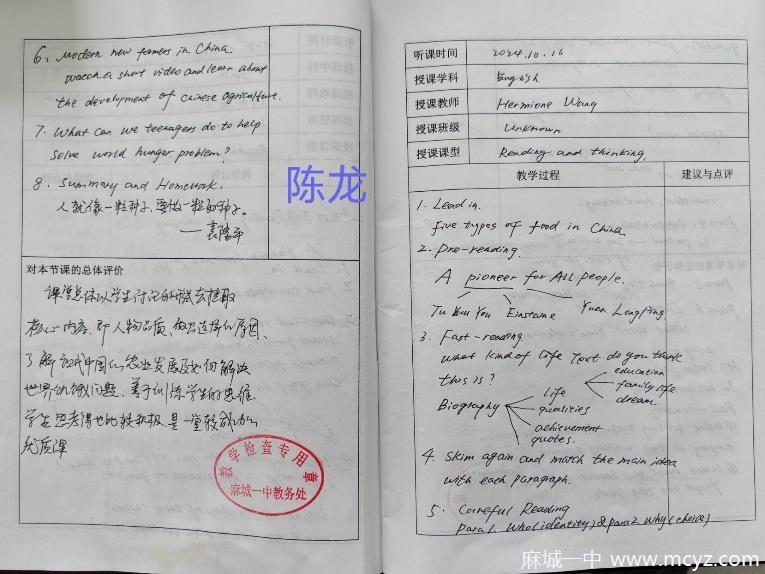 6、Modern new farmers in China.
watch a short video and learn about
the development of Chinese agriculture.
7. What can we teenagers do to help
solve world hunger problem?
8. Summary and Homework.
人就像一粒种子,要做一粒好种子。
——袁隆平
陈龙
对本节课的总体评价
课堂总体以学生问的形式去提取
核心内容,即人物品质,做出选择的原因、
了解现代中国的农业发展及如何解决
世界饥饿问题、善于训练学生的思维
学生思考得也比较积极,是一堂较成功的
优质课
教学检查专用章
麻城一中教务处
听课时间 2024.10.16
授课学科 English
授课教师 Hermione Wang
授课班级 Unknown
授课课型 Reading and thinking.
教学过程 建议与点评
1. Lead in.
five types of food in China
2. Pre-reading.
A pioneer for All people.
Tu You You Einstame Yuan Longping.
3. Fast-reading.
what kind of life Text do you think
this is?
education
family life
dream.
Biography
life
qualities
achievement
quotes.
4. Skim again and match the main idea
with each paragraph.
5. Careful Reading
para1. Who(identity) & para2. Why(choice)
麻城一中 www.mcyz.com